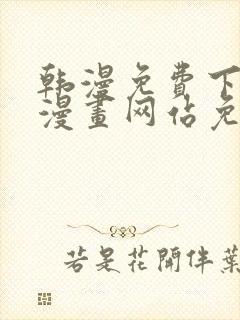 韩漫免費下
漫畫网佔免
若是花開伴葉